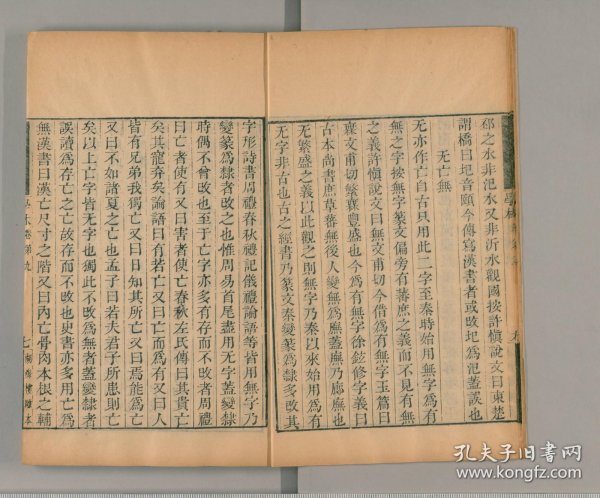 邳之水非汜水又非沂水觀國按許愼說文曰東楚
謂橋曰圯音頤今傳寫漢書者或改圯爲汜蓋誤也
无亡無
无亦作亡自古只用此二字至秦時始用無字爲有
無之字按無字篆文偏旁有蕃庶之義而不見有無
之義許愼說文曰無文甫切今借爲有無字玉篇曰
𣞤文甫切繁𣞤豐盛也今爲有無字徐鉉修字義曰
古本尚書庶草蕃無後人變無爲廡蓋廡乃廊廡也
无繁盛之義以此觀之則無字乃秦以來始用爲有
无字非古也古之經書乃篆文秦變篆爲隸多改其
字形詩書周禮春秋禮記儀禮論語等皆用無字乃
變篆爲隸者改之也惟周易首尾盡用无字蓋變隸
時偶不曾改也至于亡字亦多有存而不改者周禮
曰亡者使有又曰害者使亡春秋左氏傳曰其貴亡
矣其寵弃矣論語曰有若亡又曰亡而爲有又曰人
皆有兄弟我獨亡又曰日知其所亡又曰焉能爲亡
又曰不如諸夏之亡也孟子曰若夫君子所患則亡
矣以上亡字皆无字也獨此不改爲無者蓋變隸者
誤讀爲存亡之亡故存而不改也史書亦多用亡爲
無漢書曰漢亡尺寸之階又曰內亡骨肉本根之輔
學林卷第九
七
湖海樓雕本
孔夫子旧书网
www.kongfz.com